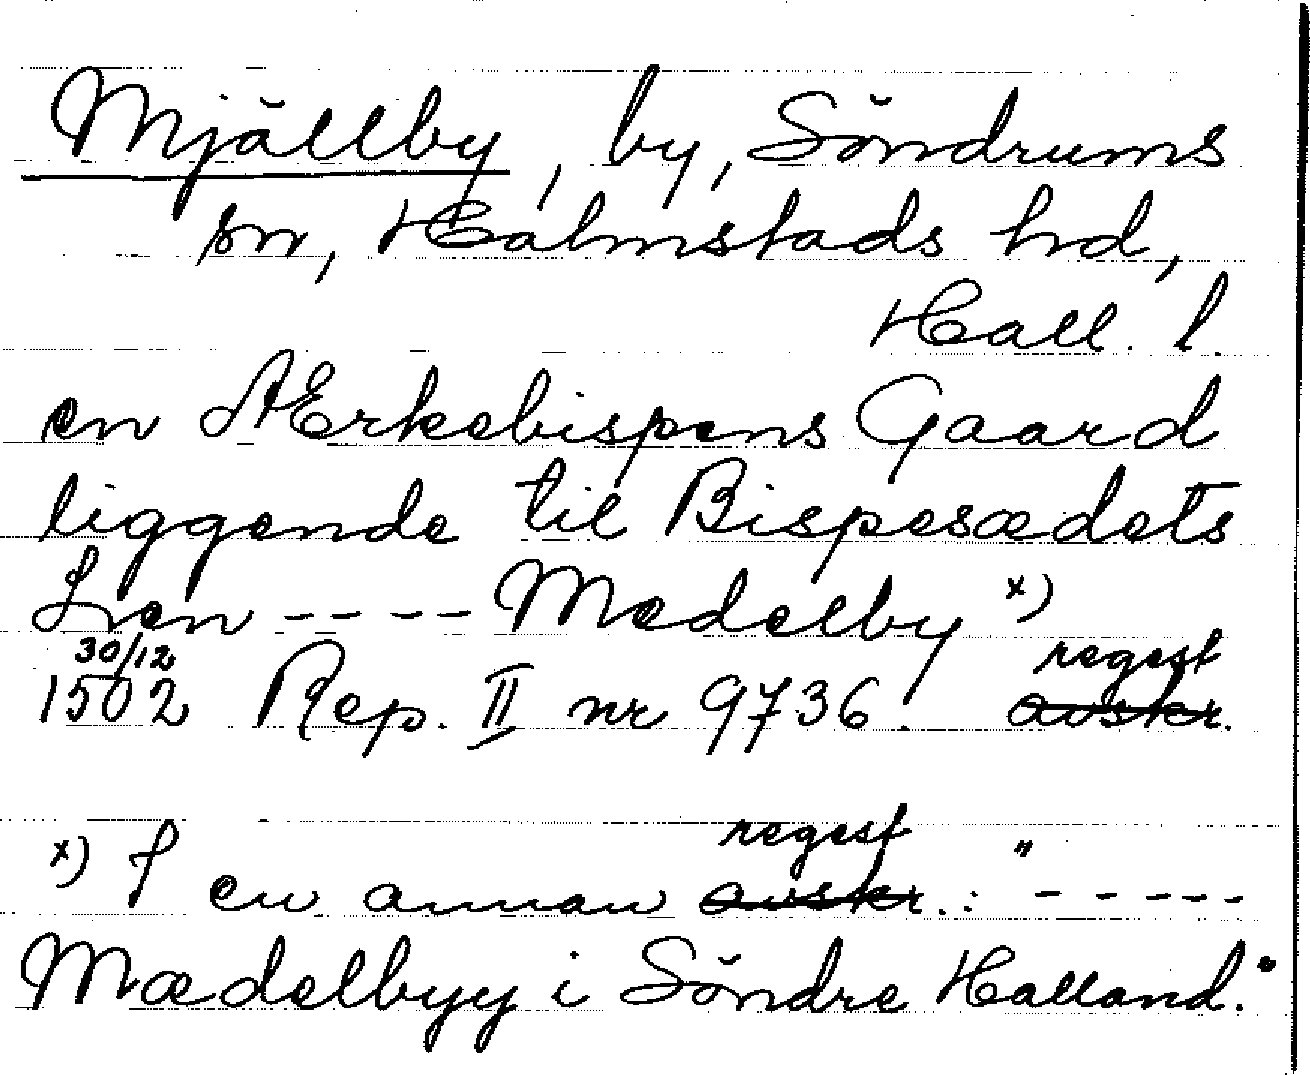 Mjällby, by, Söndrums
sn, Halmstads hd,
Hall. l.
en Ærkebispens Gaard
liggende til Bispesædets
Len ---- Mædelby x)
30/12 regest
1502 Rep. II nr 9736. avskr.
regest
x) I en annan avskr.: "-----
Mædelbyy i Söndre Halland."